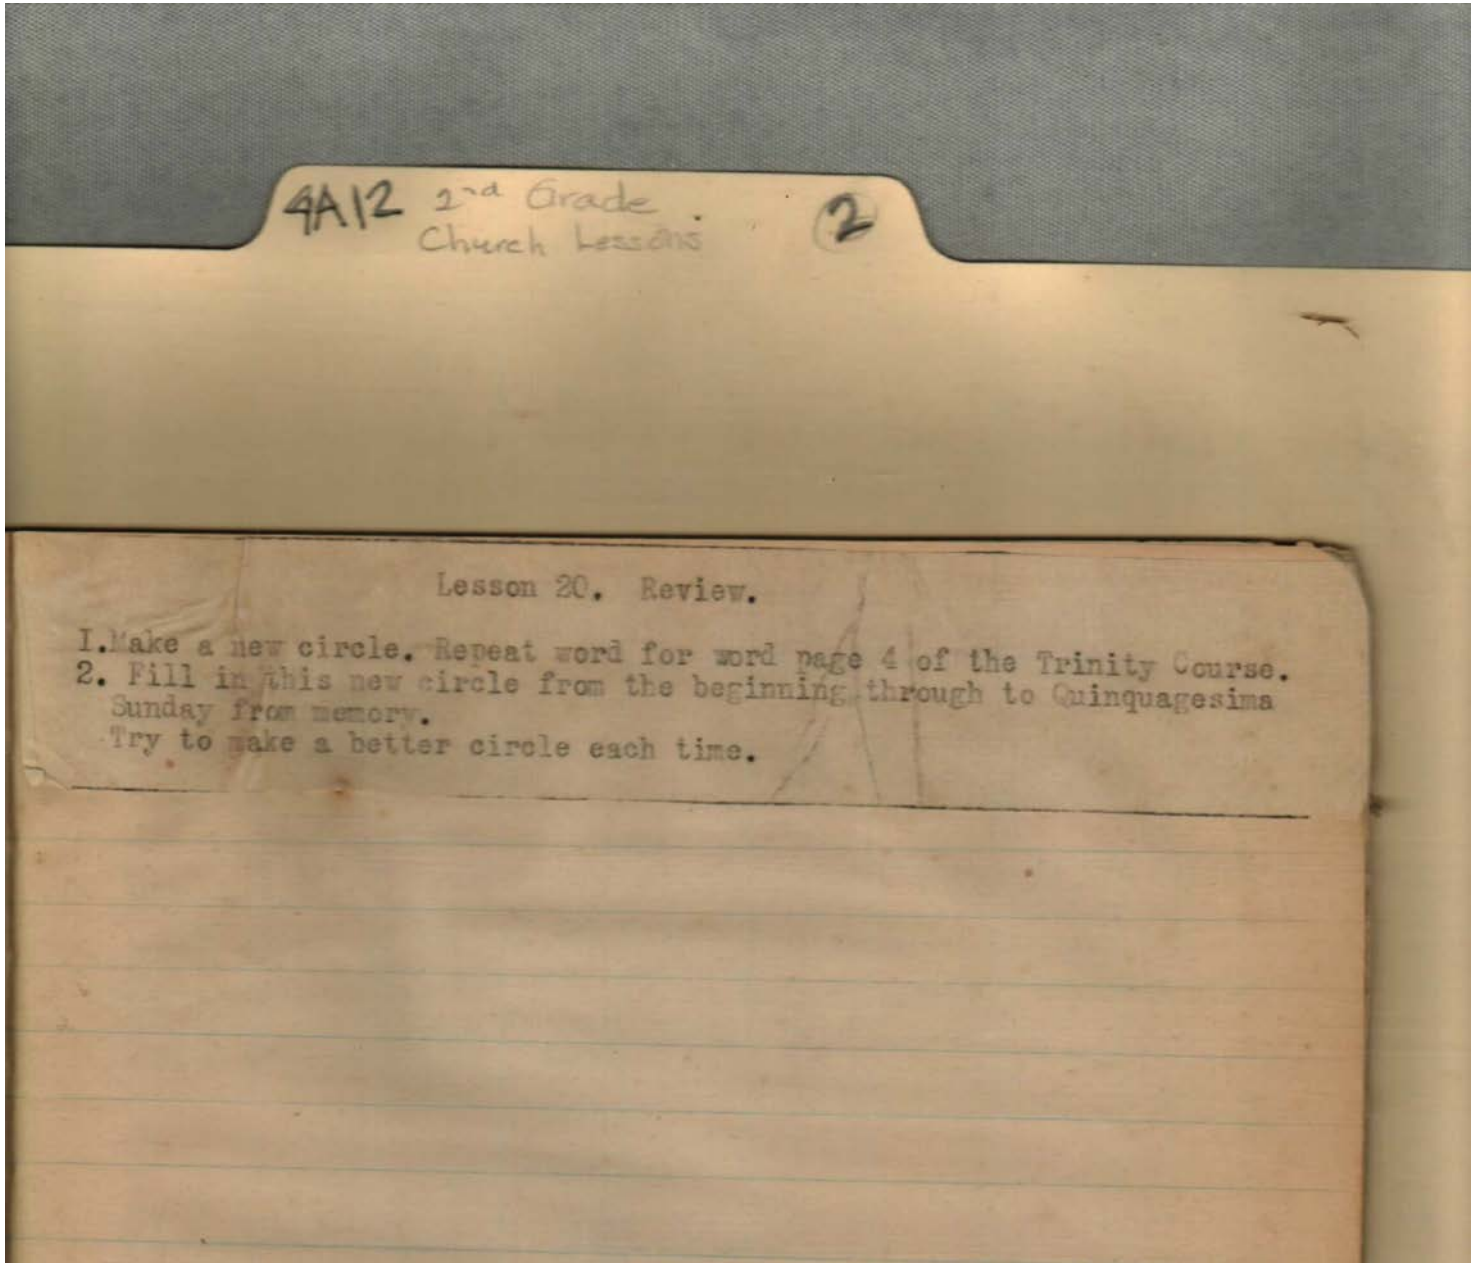 4A12 2nd Grade 2
Church Lessons
Lesson 20. Review.
I.Make a new circle. Repeat word for word page 4 of the Trinity Course.
2. Fill in this new circle from the beginning through to Quinquagesima
Sunday from memory.
Try to make a better circle each time.